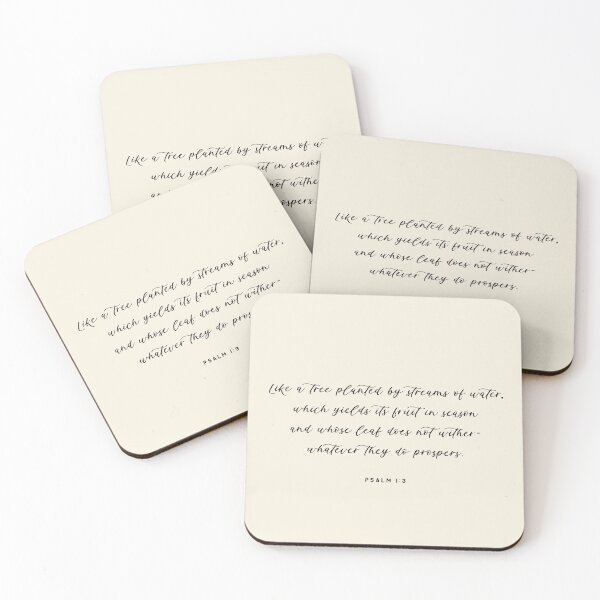 Like a tree planted by streams of
which yields its fruit in season
not wither
prospers
Like a tree planted by streams of water,
which yields its fruit in season
and whose leaf does not wither-
whatever they do prospers.
Like a tree planted by streams of water,
which yields its fruit in season
and whose leaf does not wither-
whatever they do
PSALM 1:3
Like a tree planted by streams of water,
which yields its fruit in season
and whose leaf does not wither-
whatever they do prospers.
PSALM 1:3